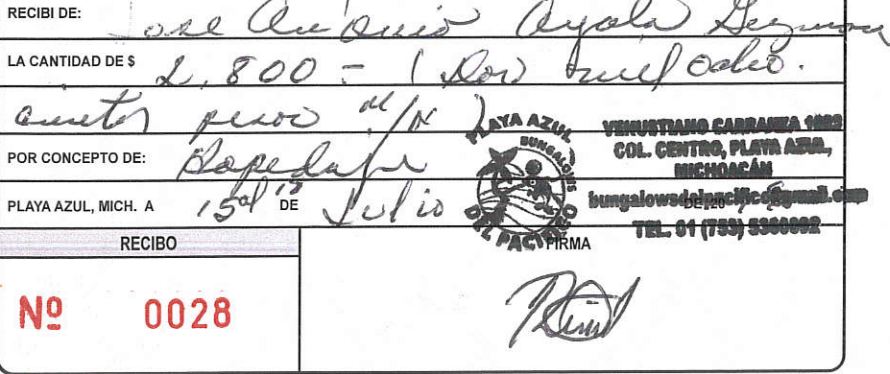 RECIBI DE: Jose Antonio Ayala Guzman
LA CANTIDAD DE $ 2,800 = (Dos mil ocho.
cientos pesos M/N)
POR CONCEPTO DE: Hospedaje
PLAYA AZUL, MICH. A 15 al DE Julio DE 20
PLAYA AZUL
BUNGALOWS
DEL PACIFICO
VENUSTIANO CARRANZA
COL. CENTRO, PLAYA AZUL,
MICHOACÁN
TEL. 01 (753) 5360092
RECIBO
FIRMA
Nº 0028